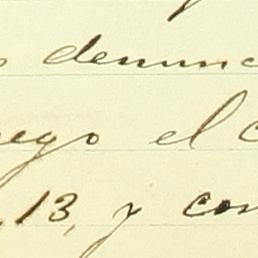 denunc
uego el c
13, y con